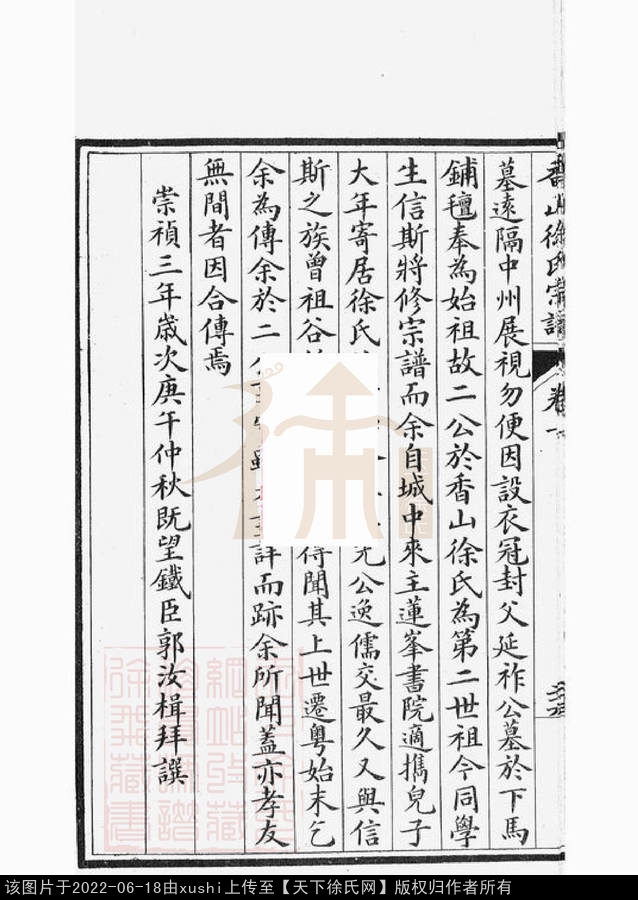 香山徐氏宗譜 卷一
墓遠隔中州展視勿便因設衣冠封父延祚公墓於下馬
鋪氊奉為始祖故二公於香山徐氏為第二世祖今同學
生信斯將修宗譜而余自城中來主蓮峯書院適攜兒子
大年寄居徐氏
公逸儒交最久又與信
斯之族曾祖谷
得聞其上世遷粵始末乞
余為傳余於二
詳而跡余所聞蓋亦孝友
無間者因合傳焉
崇禎三年歲次庚午仲秋既望鐵臣郭汝楫拜譔
该图片于2022-06-18由xushi上传至【天下徐氏网】版权归作者所有